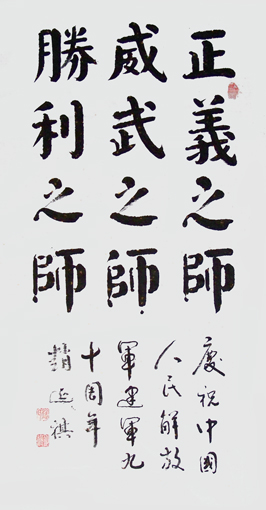 正義之師
威武之師
勝利之師
慶祝中國
人民解放
軍建軍九
十周年
趙延祺